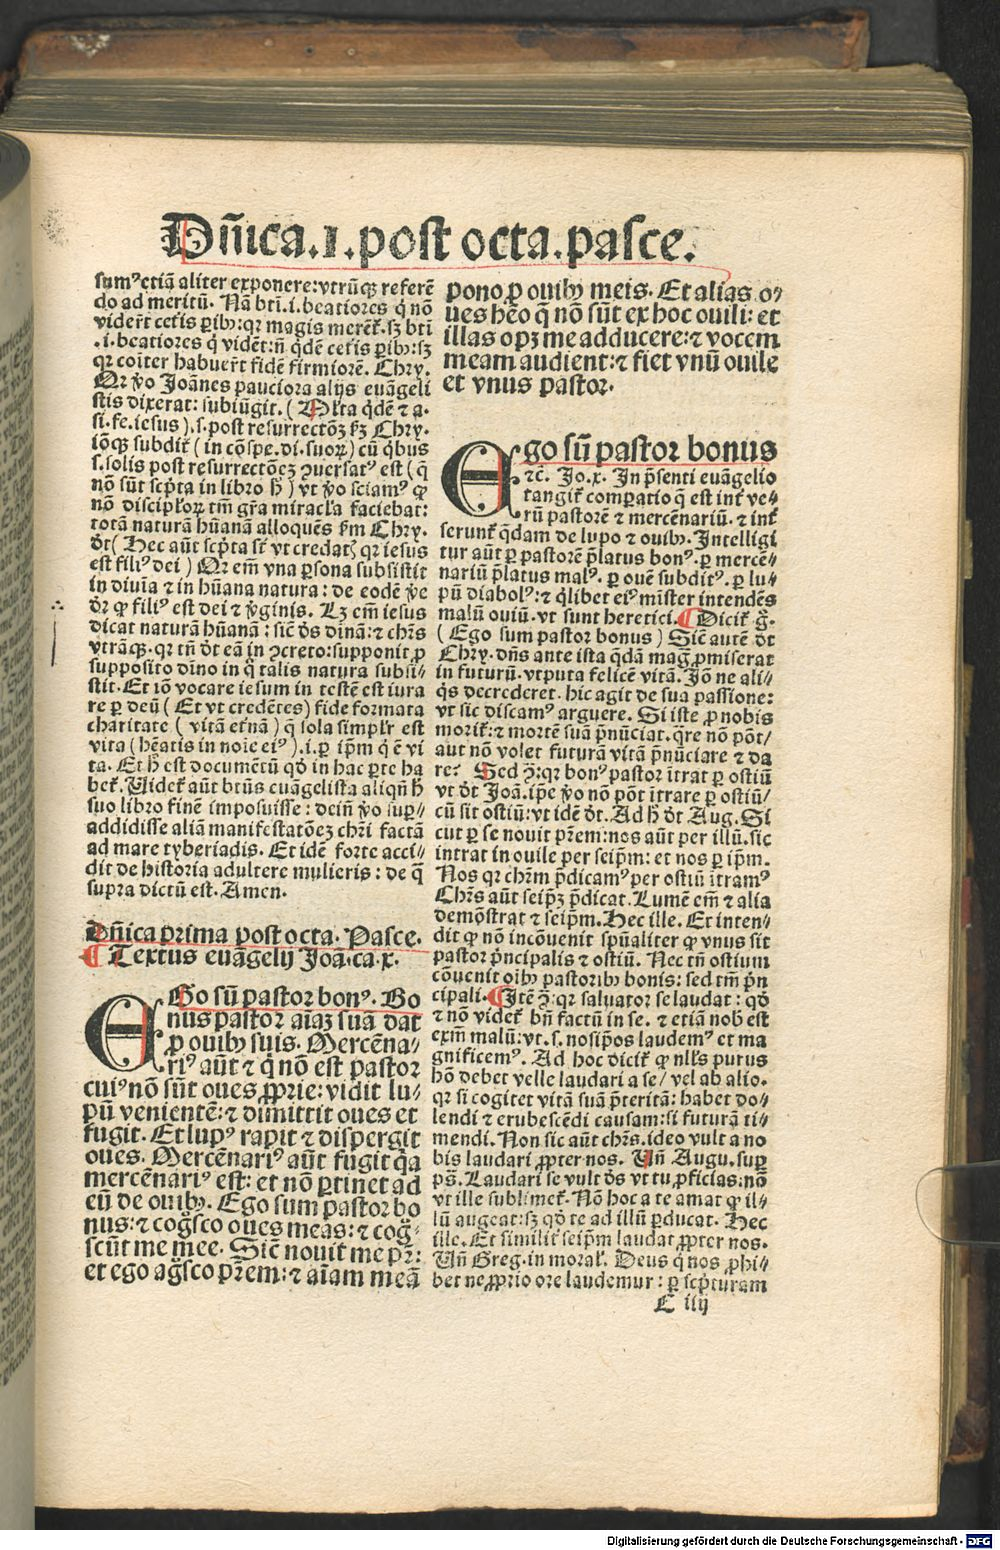 Dñica.1.post octa.pasce.
sumꝰ etiã aliter exponere: vtrũqꝫ referẽ
do ad meritũ. Nã bti.i.beatiores q̃ nõ
viderũt certis ꝑibꝫ: qꝛ magis merẽt̃. sꝫ bti
.i.beatiores q̃ vidẽt: ñ q̃dẽ certis ꝑibꝫ: sꝫ
qꝛ cõiter habuerũt fidẽ firmiorẽ. Chry.
Qꝛ ṽo Joãnes pauciora alijs euãgeli
stis dixerat: subiũgit. (Mlta q̃dẽ ⁊ a.
si.fe.iesus).s.post resurrectõꝫ ẜꝫ Chry.
iõqꝫ subdit̃ (in cõspe.di.suoꝝ) cũ q̃bus
s.solis post resurrectõeꝫ ꝯuersatꝰ est (q̃
nõ sũt scp̃ta in libro ħ) vt ṽo sciamꝰ ꝙ
nõ discipl̃oꝝ tm̃ gr̃a miracl̃a faciebat:
totã naturã hũanã alloquẽs ẜm Chry.
d̃t (Hec aũt scp̃ta sũt vt credatꝭ qꝛ iesus
est filiꝰ dei) Qꝛ em̃ vna ꝑsona subsistit
in diuĩa ⁊ in hũana natura: de eodẽ ṽe
d̃r ꝙ filiꝰ est dei ⁊ ṽginis. Lꝫ em̃ iesus
dicat naturã hũanã: sic̃ d̃s diuinã: ⁊ chr̃s
vtrãqꝫ. qꝛ tñ d̃t eã in ꝯcreto: supponit ꝓ
supposito diuino in q̃ talis natura subsi/
stit. Et iõ vocare iesum in testẽ est iura
re ꝑ deũ (Et vt credẽtes) fide formata
charitate (vitã et̃nã) q̃ sola simpl̃r est
vita (hẽatis in noĩe eiꝰ).i.ꝑ ip̃m q̃ ẽ vi
ta. Et ħ est documẽtũ qd̃ in hac ꝑte ha
bet̃. Videt̃ aũt btũs euãgelista aliqñ ħ
suo libro finẽ imposuisse: deĩñ ṽo suꝑ/
addidisse aliã manifestatõeꝫ chr̃i factã
ad mare tyberiadis. Et idẽ forte acci/
dit de historia adultere mulieris: de q̃
supra dictũ est. Amen.
Dñica prima post octa. Pasce.
¶ Textus euãgelij Joã.ca.x.
EGo sũ pastor bonꝰ. Bo
nus pastor aĩaꝫ suã dat
ꝓ ouibꝫ suis. Mercẽna/
riꝰ aũt ⁊ q̃ nõ est pastor
cuiꝰ nõ sũt oues ꝓprie: vidit lu/
pũ venientẽ: ⁊ dimittit oues et
fugit. Et lupꝰ rapit ⁊ dispergit
oues. Mercẽnariꝰ aũt fugit q̃a
mercẽnariꝰ est: et nõ ꝑtinet ad
eũ de ouibꝫ. Ego sum pastor bo
nus: ⁊ cog̃sco oues meas: ⁊ cog̃/
scũt me mee. Sic̃ nouit me pr̃:
et ego ag̃sco pr̃em: ⁊ aĩam meã
pono ꝓ ouibꝫ meis. Et alias o/
ues hẽo q̃ nõ sũt ex hoc ouili: et
illas opꝫ me adducere: ⁊ vocem
meam audient: ⁊ fiet vnũ ouile
et vnus pastor.
Ego sũ pastor bonus
⁊c̃. Jo.x. In p̃senti euãgelio
tangit̃ comꝑatio q̃ est int̃ ve/
rũ pastorẽ ⁊ mercẽnariũ. ⁊ int̃
serunt̃ q̃dam de lupo ⁊ ouibꝫ. Intelligi
tur aũt ꝑ pastorẽ p̃latus bonꝰ. ꝑ mercẽ/
nariũ p̃latus malꝰ. ꝑ ouẽ subditꝰ. ꝑ lu/
pũ diabolꝰ: ⁊ q̃libet eiꝰ mĩster intendẽs
malũ ouiũ. vt sunt heretici. ¶ Dicit̃ g̃.
(Ego sum pastor bonus) Sic̃ autẽ d̃t
Chry. dñs ante ista q̃dã mag̃ ꝓmiserat
in futurũ. vtputa felicẽ vitã. Jõ ne ali/
q̃s decrederet. hic agit de sua passione:
vt sic discamꝰ arguere. Si iste ꝓ nobis
morit̃: ⁊ mortẽ suã p̃nũciat. q̃re nõ põt/
aut nõ volet futurã vitã p̃nũciare ⁊ da
re? Sed ꝯ̃: qꝛ bonꝰ pastor ĩtrat ꝑ ostiũ
vt d̃t Joã. ip̃e ṽo nõ põt ĩtrare ꝑ ostiũ/
cũ sit ostiũ: vt idẽ d̃t. Ad ħ d̃t Aug. Si
cut ꝑ se nouit pr̃em: nos aũt per illũ. sic
intrat in ouile per seip̃m: et nos ꝑ ip̃m.
Nos qꝛ chr̃m p̃dicamꝰ per ostiũ ĩtramꝰ
Chr̃s aũt seip̃ꝫ p̃dicat. Lumẽ em̃ ⁊ alia
demõstrat ⁊ seip̃m. Hec ille. Et inten/
dit ꝙ nõ incõuenit spũaliter ꝙ vnus sit
pastor p̃ncipalis ⁊ ostiũ. Nec tñ ostium
cõuenit oĩbꝫ pastoribꝫ bonis: sed tm̃ p̃n
cipali. ¶ Jtẽ ꝯ̃: qꝛ saluator se laudat: qd̃
⁊ nõ videt̃ bñ factũ in se. ⁊ etiã nob̃ est
exm̃ malũ: vt.s. nosip̃os laudemꝰ et ma
gnificemꝰ. Ad hoc dicit̃ ꝙ nll̃s purus
hõ debet velle laudari a se/ vel ab alio.
qꝛ si cogitet vitã suã p̃teritã: habet do/
lendi ⁊ erubescẽdi causam: si futurã ti/
mendi. Non sic aũt chr̃s. ideo vult a no
bis laudari ꝓpter nos. Vñ Augu. suꝑ
ps̃. Laudari se vult d̃s vt tu ꝓficias: nõ
vt ille sublimet̃. Nõ hoc a te amat ꝙ il/
lũ augeat: sꝫ qd̃ te ad illũ ꝑducat. Hec
ille. Et similit̃ seip̃m laudat ꝓpter nos.
Vñ Greg. in moral̃. Deus q̃ nos ꝓhi/
bet ne ꝓprio ore laudemur: ꝑ scp̃turam
C iiij
Digitalisierung gefördert durch die Deutsche Forschungsgemeinschaft - DFG